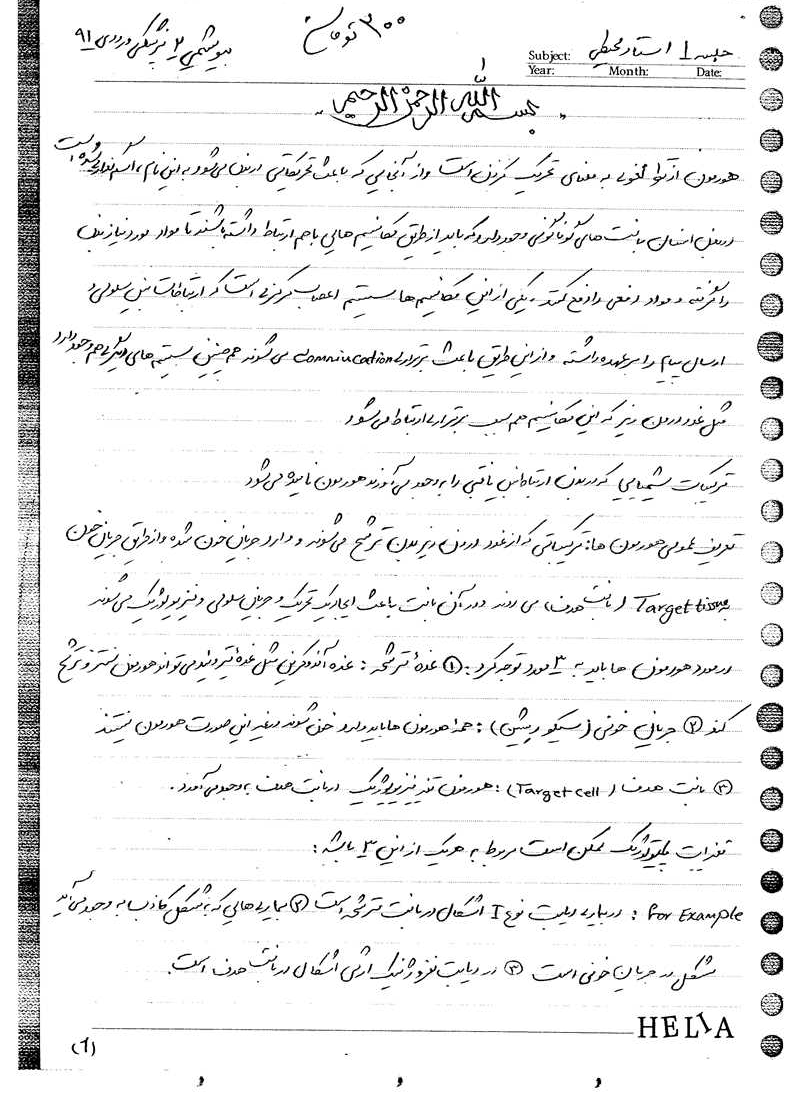 ۳۰۰ تومان
بیوشیمی ۲ پزشکی ورودی ۹۱
جلسه 1 استاد محیطی
Subject:
Year: Month: Date:
بسم الله الرحمن الرحیم
هورمون از نظر لغوی به معنای تحریک کردن است و از آنجایی که باعث تحریکاتی در بدن می‌شود به این نام، اسم گذاری شده است
در بدن انسان بافت های گوناگونی وجود دارد که باید از طریق مکانیسم هایی با هم ارتباط داشته باشند تا مواد مورد نیاز بدن
را گرفته و مواد دفعی را دفع کنند. یکی از این مکانیسم ها سیستم اعصاب مرکزی است که ارتباطات بین سلولی و
ارسال پیام را بر عهده داشته و از این طریق باعث برقراری Communication می شوند همچنین سیستم های دیگری هم وجود دارد
مثل غدد درون ریز که این مکانیسم هم سبب برقراری ارتباط می شود
ترکیبات شیمیایی که در بدن ارتباط بین بافتی را به وجود می آورند هورمون نامیده می شود
تعریف عمومی هورمون ها: ترکیباتی که از غدد درون ریز بدن ترشح می شوند و وارد جریان خون شده و از طریق جریان خون
Target tissue (بافت هدف) می روند و در آن بافت باعث ایجاد یک تحریک و جریان سلولی و فیزیولوژیک می شوند
در مورد هورمون ها باید به ۳ مورد توجه کرد: ① غدهٔ ترشحه: غده آندوکرین مثل غده تیروئید می تواند هورمون سنتز و ترشح
کند ② جریان خونی (سیکولیشن): همه هورمون ها باید وارد خون شوند در غیر این صورت هورمون نیستند
③ بافت هدف (Target cell): هورمون تغییر فیزیولوژیک در بافت هدف به وجود می آورد.
تغییرات پاتولوژیک ممکن است مربوط به هر یک از این ۳ باشد:
For Example: در بیماری دیابت نوع I اشکال در بافت ترشحه است ② بیماری هایی که به شکل کاذب به وجود می آید
مشکل در جریان خونی است ③ در دیابت نفروژنیک ارثی اشکال در بافت هدف است.
HELIA
(1)